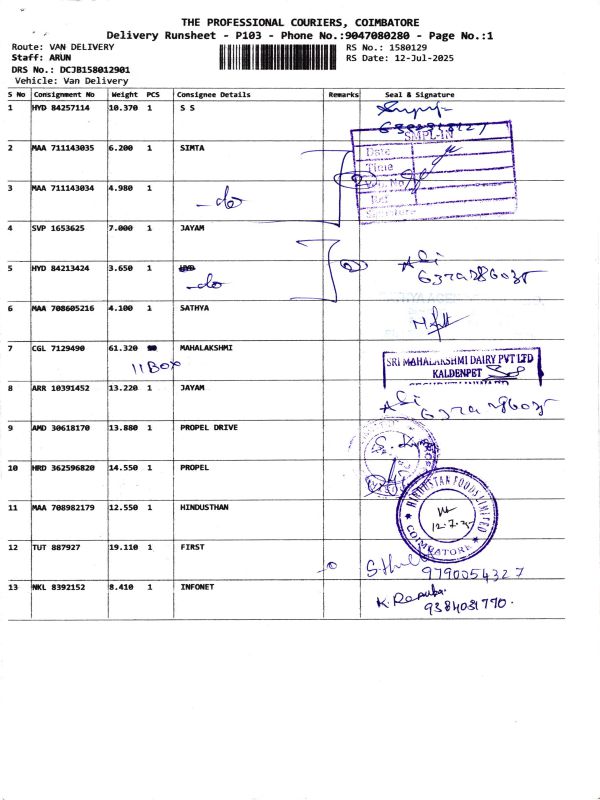 THE PROFESSIONAL COURIERS, COIMBATORE
Delivery Runsheet - P103 - Phone No.:9047080280 - Page No.:1
Route: VAN DELIVERY
RS No.: 1580129
Staff: ARUN
RS Date: 12-Jul-2025
DRS No.: DCJB158012901
Vehicle: Van Delivery
S No Consignment No Weight PCS Consignee Details Remarks Seal & Signature
1 HYD 84257114 10.370 1 S S
SMPL-IN
2 MAA 711143035 6.200 1 SIMTA
Date
Time
3 MAA 711143034 4.980 1 -do
4 SVP 1653625 7.000 1 JAYAM
5 HYD 84213424 3.650 1 -do
6 MAA 708605216 4.100 1 SATHYA
7 CGL 7129490 61.320 MAHALAKSHMI
11 BOX
SRI MAHALAKSHMI DAIRY PVT LTD
KALDENPET
8 ARR 10391452 13.220 1 JAYAM
9 AMD 30618170 13.880 1 PROPEL DRIVE
10 HRD 362596820 14.550 1 PROPEL
11 MAA 708982179 12.550 1 HINDUSTHAN
HINDUSTAN FOODS LIMITED
COIMBATORE
12 TUT 887927 19.110 1 FIRST
9790054327
13 NKL 8392152 8.410 1 INFONET
9384031770.